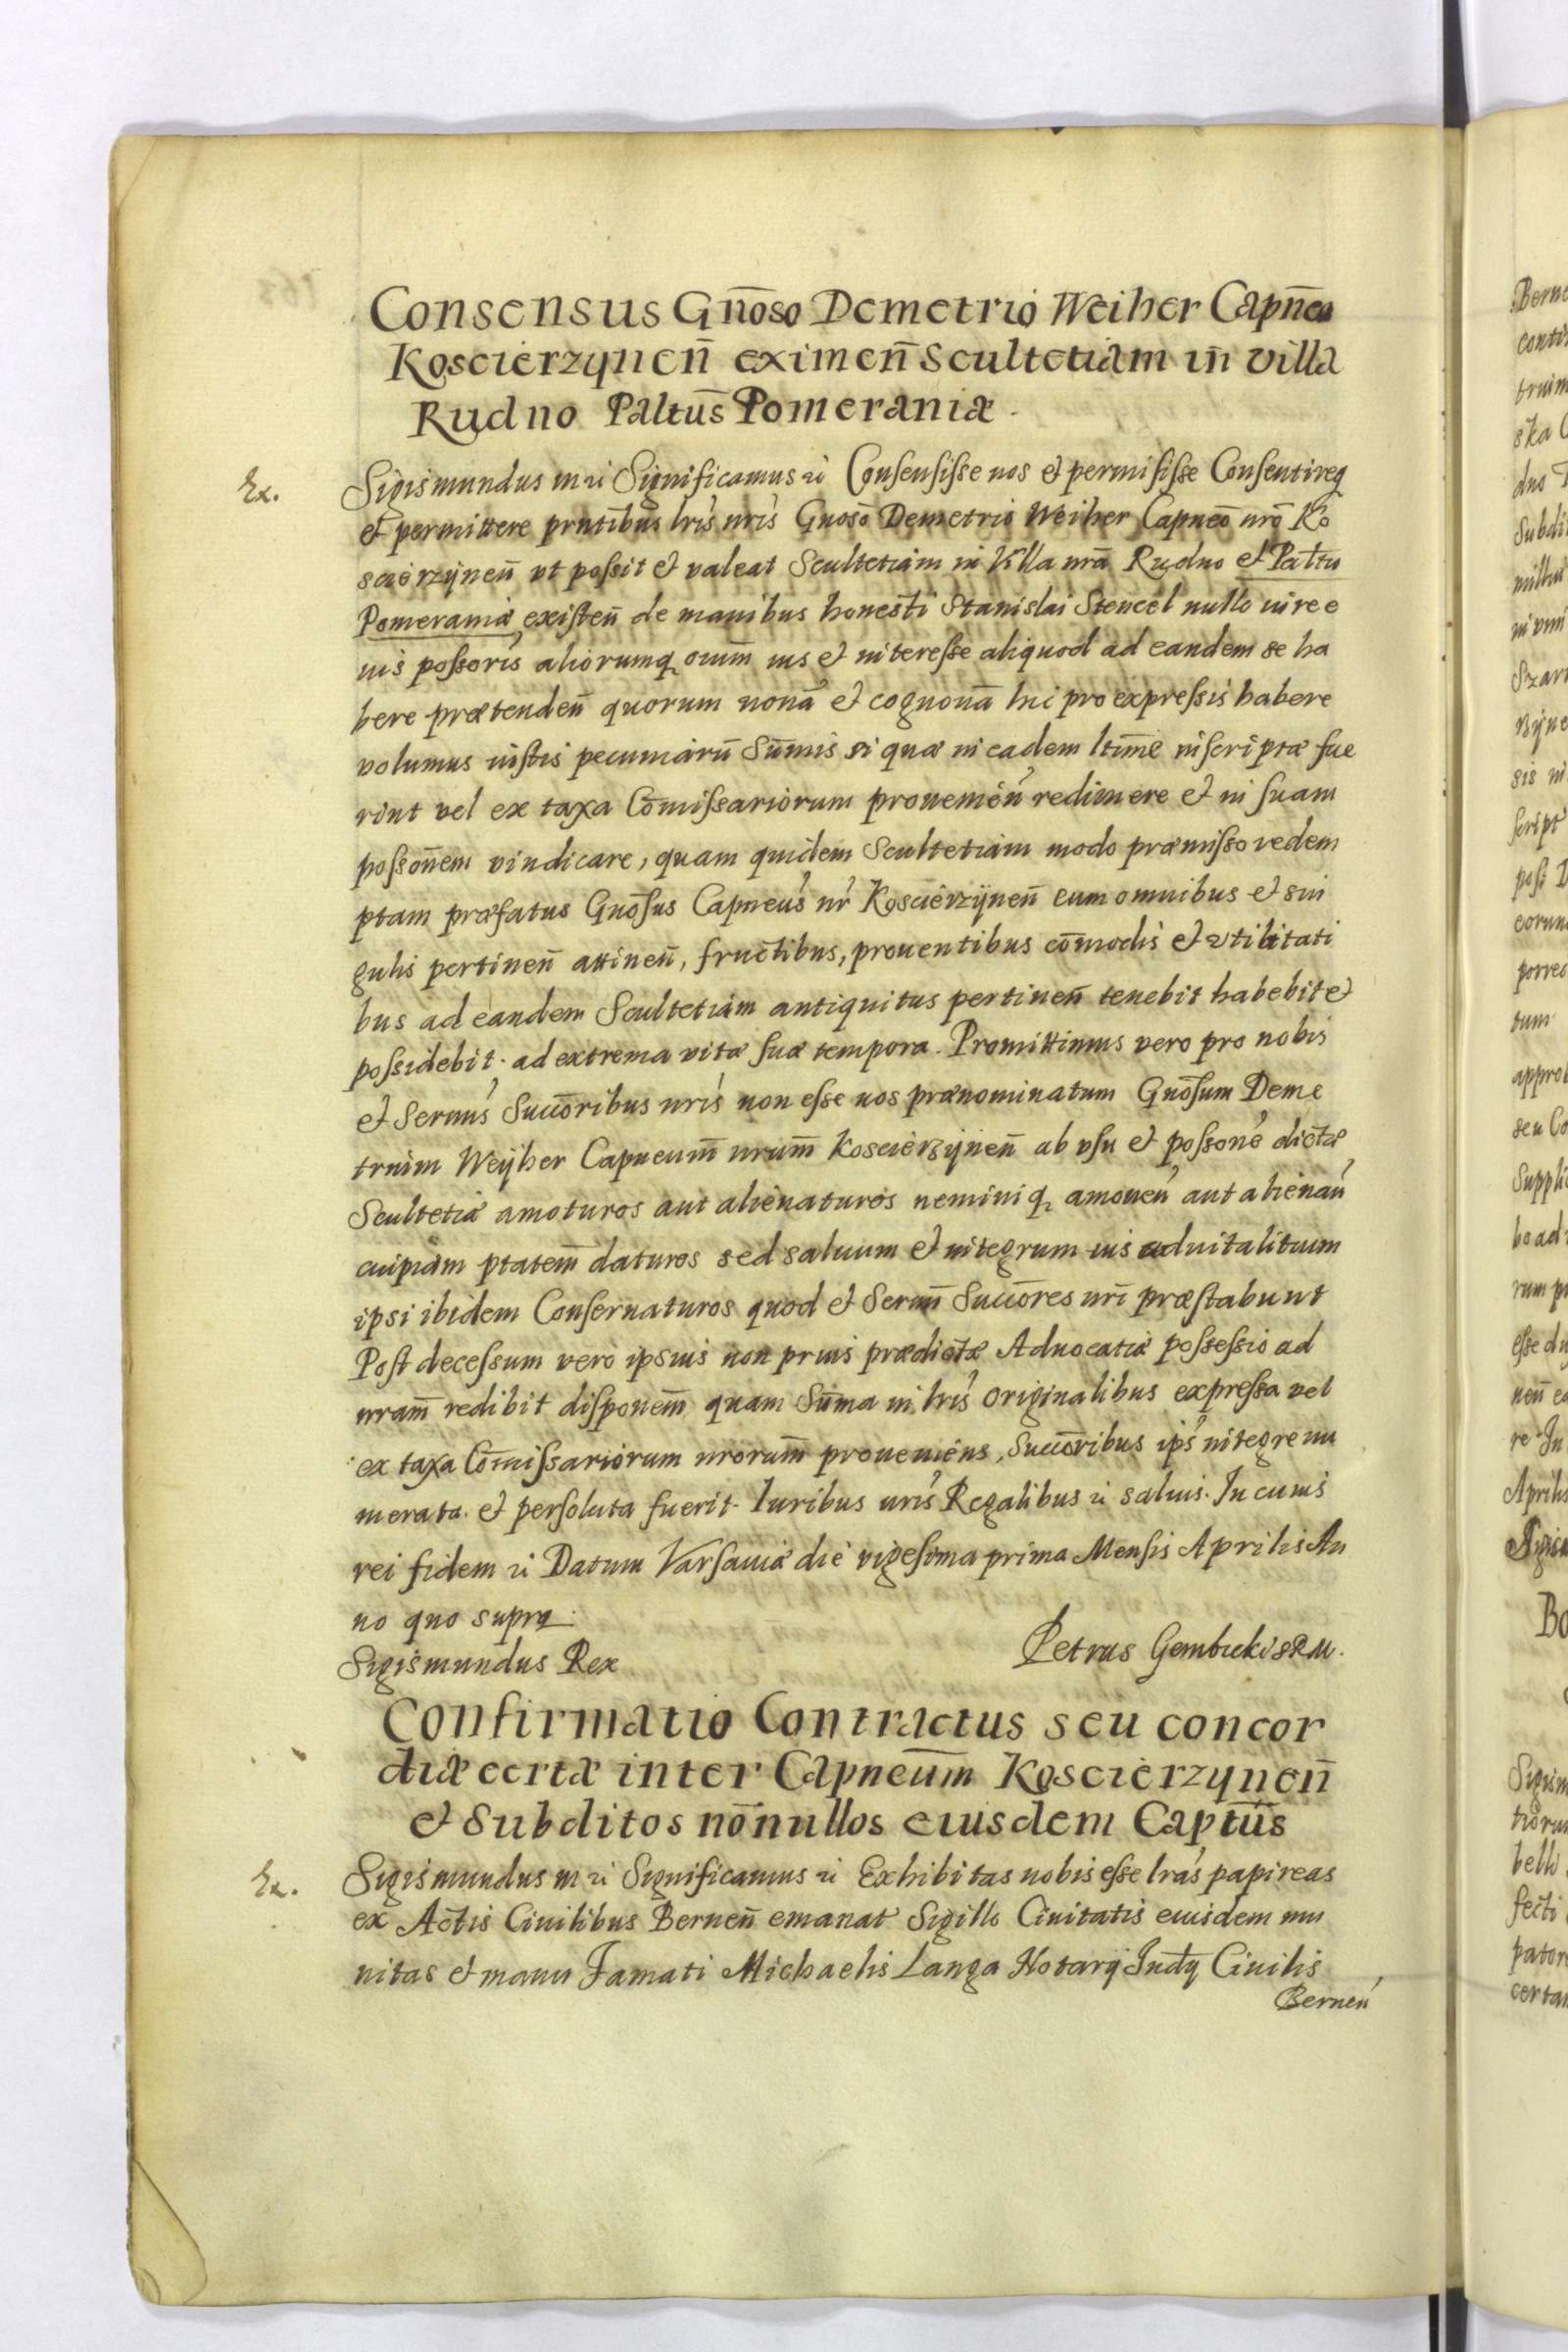 Consensus Gn̄oso Demetrio Weiher Capn̄eo
Koscierzynen̄ eximen̄ Scultetiam in villa
Rudno Paltus̄ Pomeraniæ.
Ex.
Sigismundus m ꝛc̄ Significamus ꝛc̄ Consensisse nos et permisisse Consentireq
et permittere pr̄ntibus lr̄is nr̄is Gnoso̅ Demetrio Weiher Capneo̅ nr̄o Ko
scierzÿnen̄ vt possit et valeat Scultetiam in Villa nr̄a Rudno et Paltu
Pomeraniæ existen̄ de manibus honesti Stanislai Stencel nullo iure e
ius possoris aliorumq omn̄ium ius et interesse aliquod ad eandem se ha
bere prætenden̄ quorum noña et cognoña hic pro expressis habere
volumus iustis pecuniaru̅ Sum̄is si quæ in eadem ltīme inscriptæ fue
rint vel ex taxa Com̄issariorum prouenien̄ redimere et in suam
posson̄em vindicare, quam quidem Scultetiam modo præmisso redem
ptam præfatus Gno̅sus Capneus nr̄ KoscierzÿnenÌ„ cum omnibus et sin
gulis pertinen̄ attinen̄, fructibus, prouentibus com̄odis et vtilitati
bus ad eandem Scultetiam antiquitus pertinen̄ tenebit habebit et
possidebit ad extrema vitæ suæ tempora. Promittimus vero pro nobis
et Sermis Succ̄oribus nr̄is non esse nos prænominatum Gno̅sum Deme
trium Weÿher Capneum̄ nrum̄ Koscierzÿnen̄ ab vsu et posson̄e dictæ
Scultetiæ amoturos aut alienaturos neminiq amouen̄ aut alienan̄
cuipiam ptatem̄ daturos sed saluum et integrum ius aduitalitium
ipsi ibidem Conseruaturos quod et Serm̄i Succ̄ores nr̄i præstabunt
Post decessum vero ipsius non prius prædictæ Aduocatiæ possessio ad
nram̄ redibit disponem̄ quam Sum̄a in lr̄is originalibus expressa vel
ex taxa Com̄issariorum nrorum̄ proueniens, Succ̄oribus ips̄ integre nu
merata et persoluta fuerit. Iuribus nr̄is Regalibus ꝛc̄ saluis. In cuius
rei fidem ꝛc̄ Datum Varsauiæ die vigesima prima Mensis Aprilis An
no quo supra
Sigismundus Rex
Petrus Gembicki SRM.
Confirmatio Contractus seu concor
diæ certæ inter Capneum̄ Koscierzynen̄
et Subditos no̅nullos eiusdem Captus̄
Ex.
Sigismundus m ꝛc̄ Significamus ꝛc̄ Exhibitas nobis esse lr̄as papireas
ex Actis Ciuilibus Bernen̄ emanat Sigillo Ciuitatis eiusdem mu
nitas et manu Famati Michaelis Langa Notarij Judÿ Ciuilis
Bernen̄